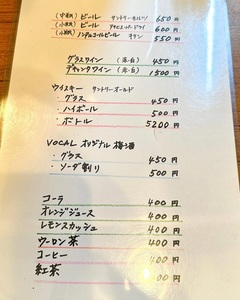 (中瓶) ビール サントリーモルツ 650 円
(小瓶) ビール アサヒスーパードライ 600 円
(小瓶) ノンアルコールビール キリン 550 円
グラスワイン (赤・白) 450 円
デキャンタワイン (赤・白) 1500 円
ウイスキー サントリーオールド
・グラス 450 円
・ハイボール 500 円
・ボトル 5200 円
VOCAL オリジナル 梅酒
・グラス 450 円
・ソーダ割り 500 円
コーラ 400 円
オレンジジュース 400 円
レモンスカッシュ 400 円
ウーロン茶 400 円
コーヒー 400 円
紅茶 400 円